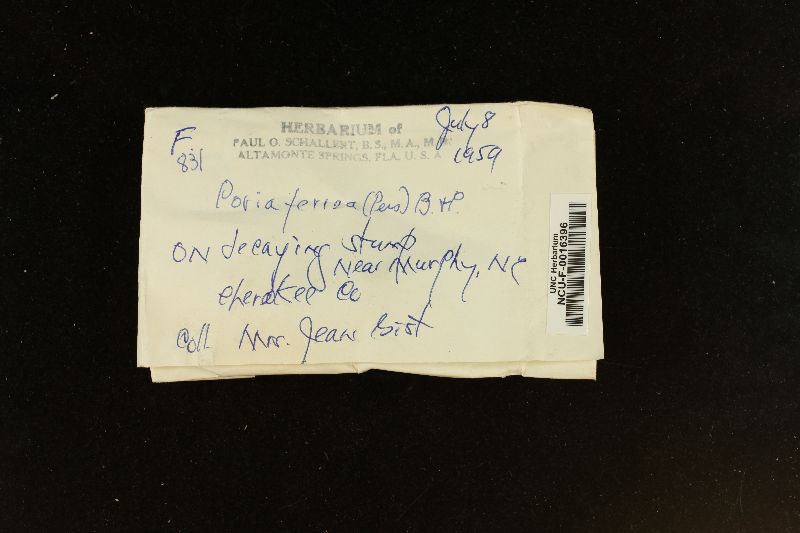 F
831
HERBARIUM of
PAUL O. SCHALLERT, B. S., M. A., M. D.
ALTAMONTE SPRINGS, FLA. U. S. A
July 8
1959
Poria ferrea (Pers) B.
ON decaying stump
Near Murphy, NC
Cherokee Co
Coll Mrs. Jean Gist
UNC Herbarium
NCU-F-0016396